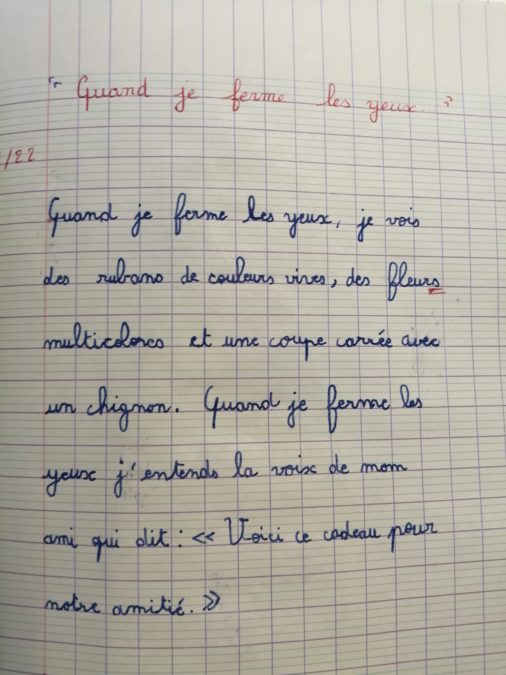 " Quand je ferme les yeux... "
/22
Quand je ferme les yeux, je vois
des rubans de couleurs vives, des fleurs
multicolores et une coupe carrée avec
un chignon. Quand je ferme les
yeux j'entends la voix de mon
ami qui dit : « Voici ce cadeau pour
notre amitié. »